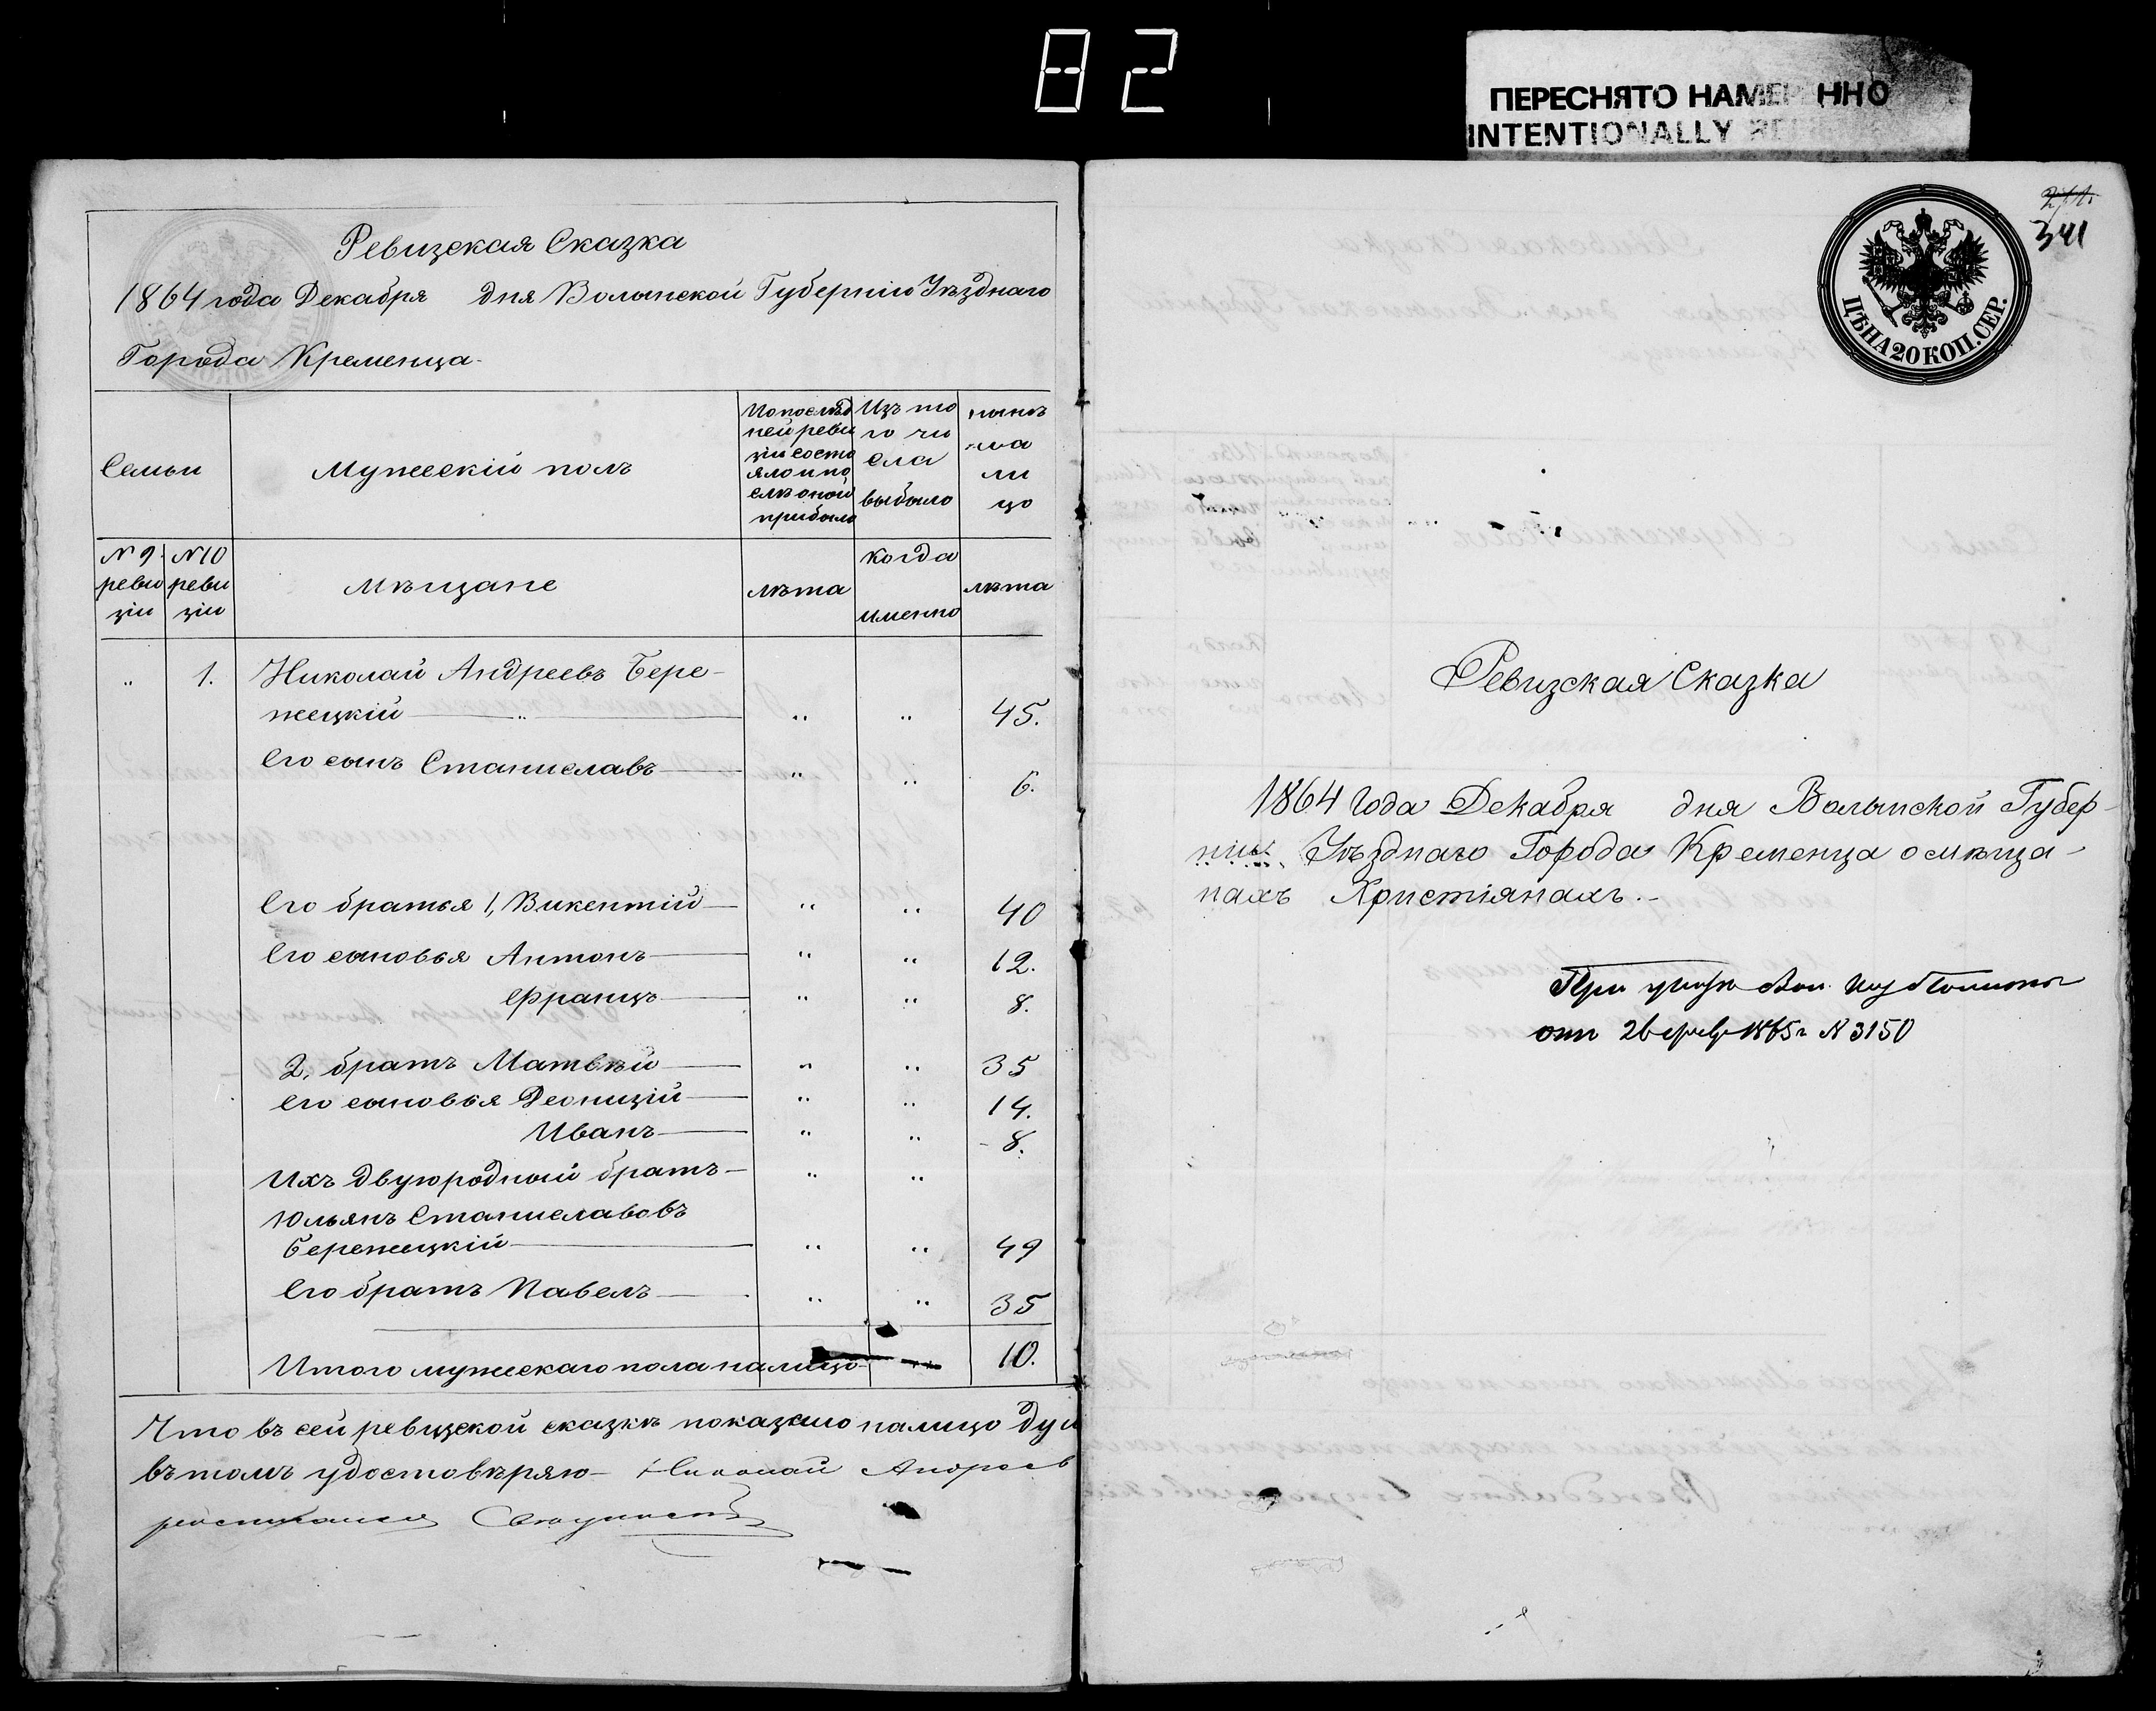 82
ПЕРЕСНЯТО НАМЕР ННО
INTENTIONALLY
Ревизская Сказка
1864 года Декабря дня Волынской Губерніи Уѣзднаго
Города Кременца
Семьи
Мужескій полъ
По послѣд
ней реви
зіи состо
яло и по
слѣ оной
прибыло
Изъ то
го чи
сла
выбыло
нынѣ
на
ли
цо
№ 9
реви
зіи
№ 10
реви
зіи
Мѣщане
лѣта
когда
именно
лѣта
" 1. Николай Андреевъ Бере-
жецкій " " " 45.
Его сынъ Станиславъ " " 6.
Его братья 1, Викентій " " 40
Его сыновья Антонъ " " 12.
Францъ " " 8.
2, братъ Матвѣй " " 35
Его сыновья Деонизій " " 14.
Иванъ " " 8.
Ихъ двуюродный братъ " "
Юльянъ Станиславовъ
Бережецкій " " 49
Его братъ Павелъ " " 35
Итого мужескаго пола на лицо 10.
Что въ сей ревизской сказкѣ показано налицо душ
въ томъ удостовѣряю Николай Андреев
341
ЦѢНА 20 КОП. СЕР.
Ревизская Сказка
1864 Года Декабря дня Волынской Губер-
ніи Уѣзднаго Города Кременца о мѣща-
нахъ Христіянахъ.
При
от 26 февр 1865 г № 3150